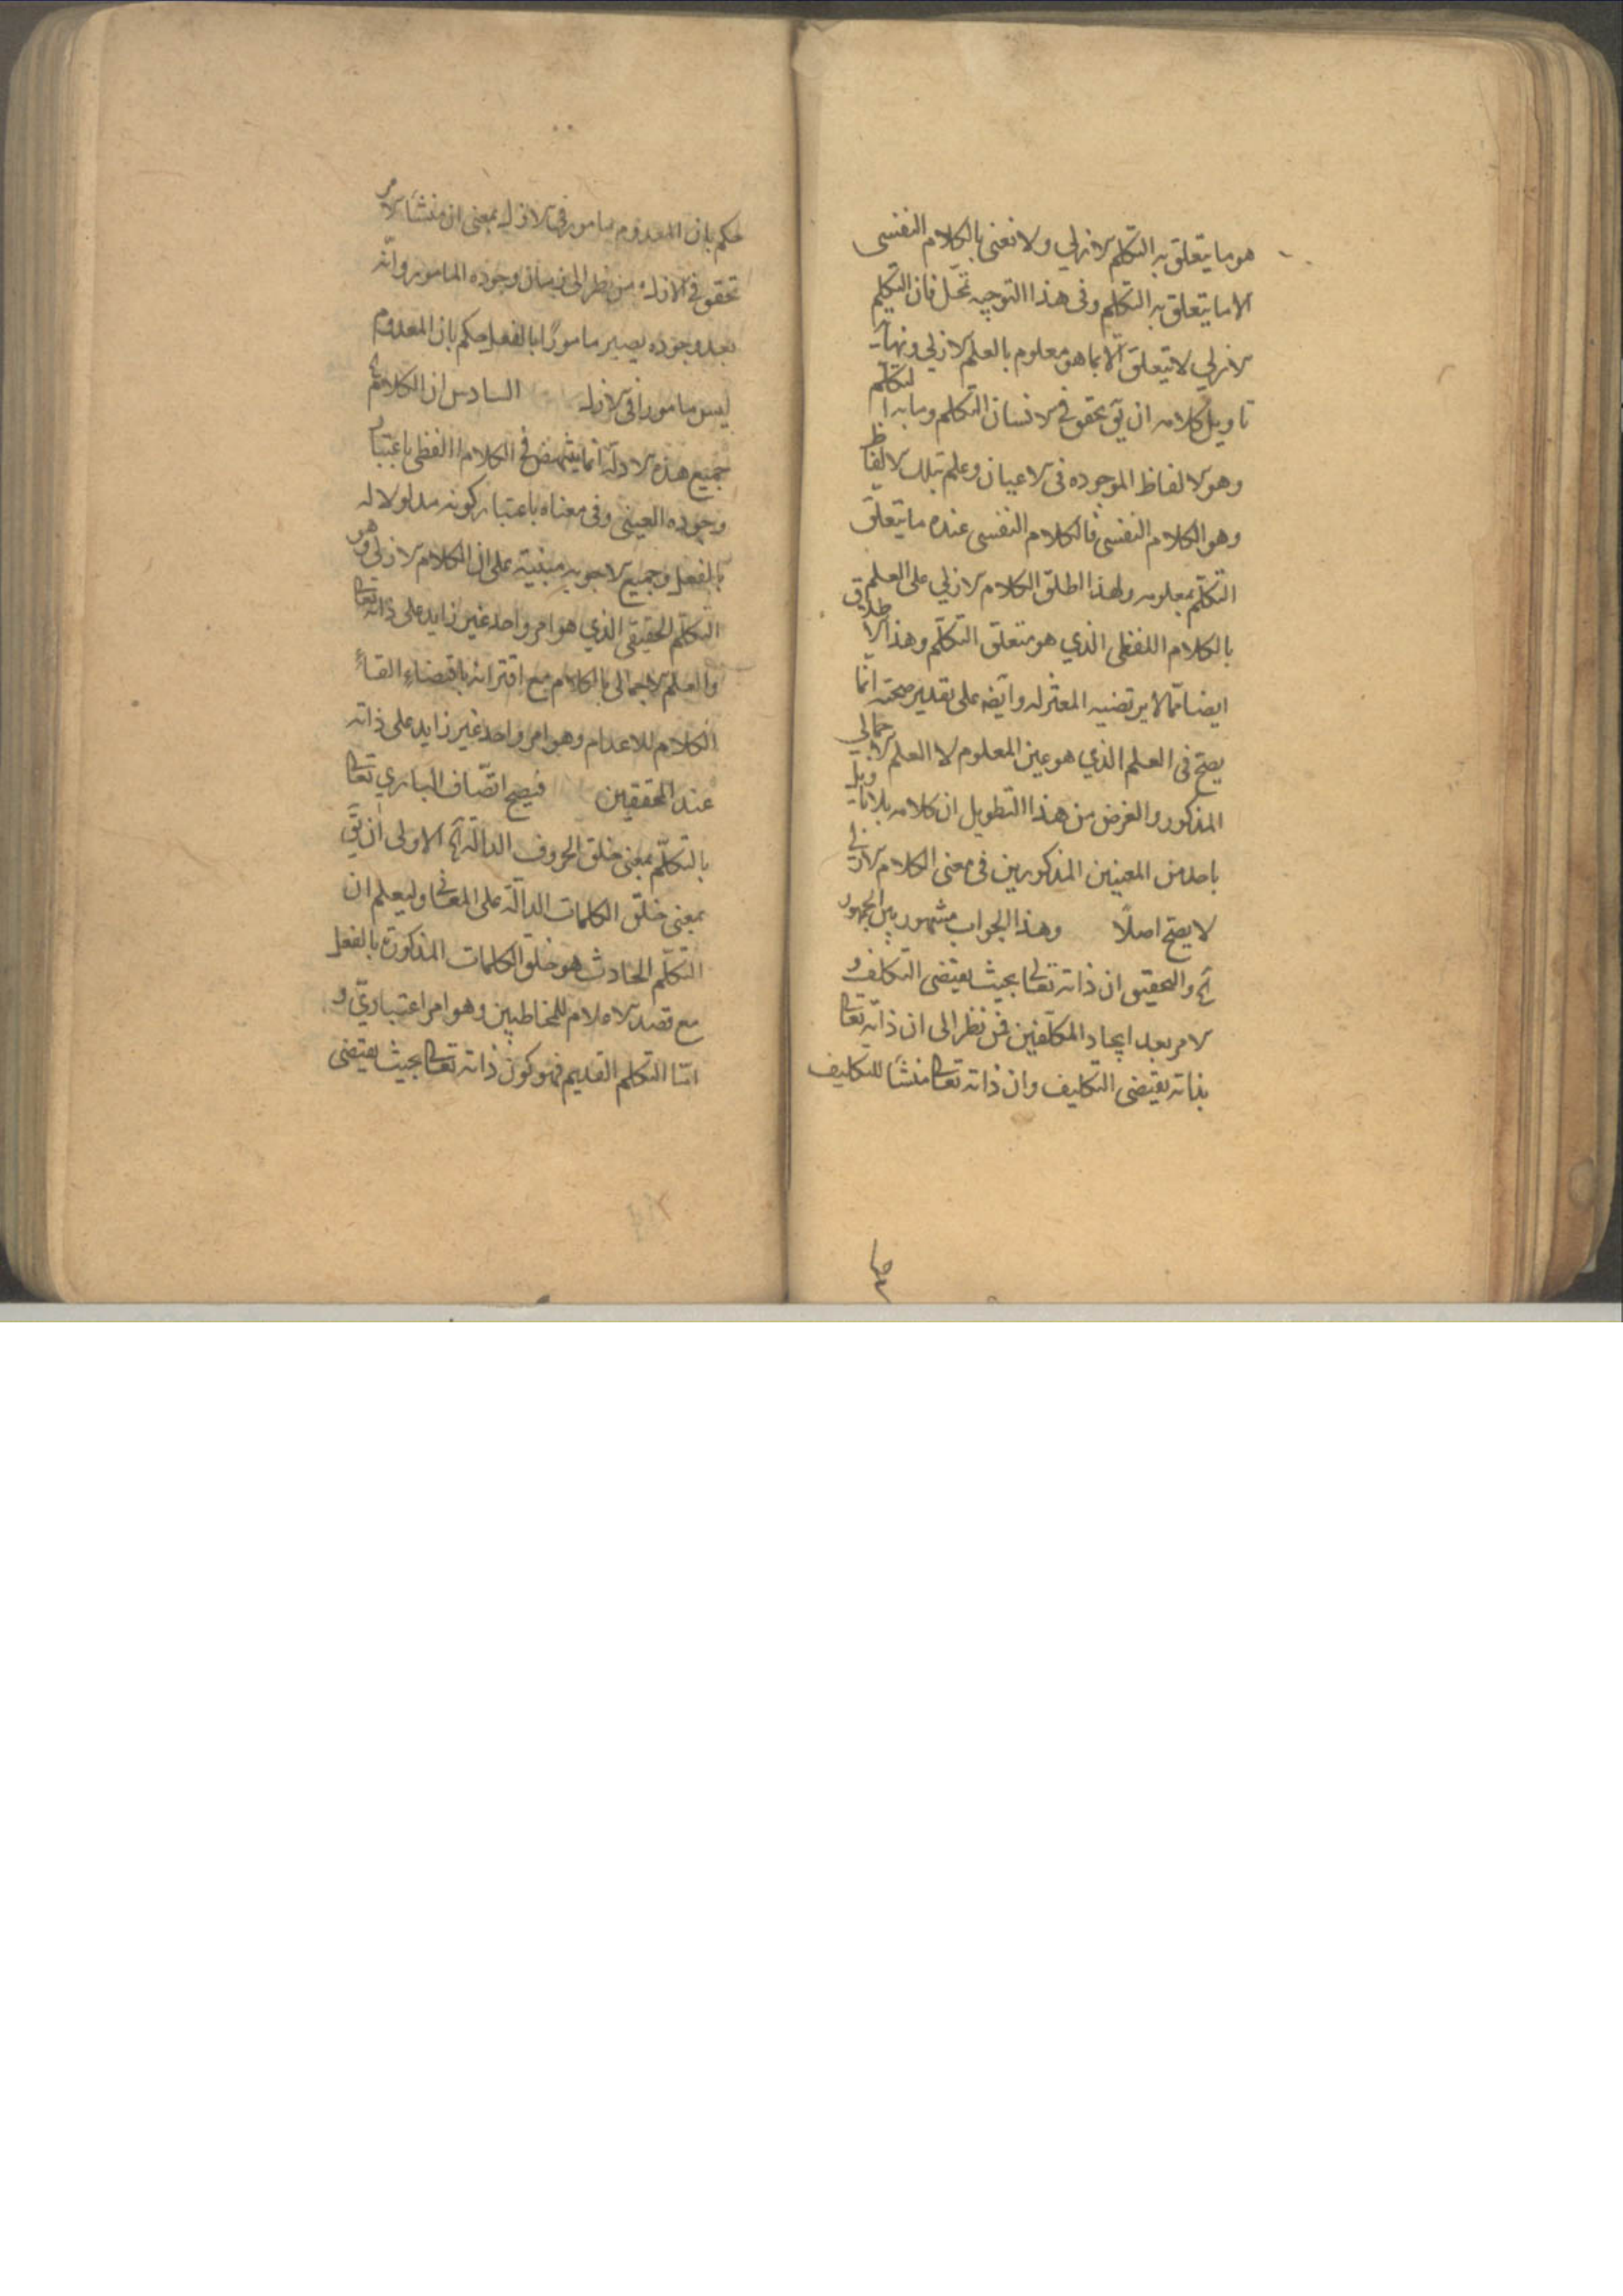 هو ما يتعلق به التكلم الازلي ولا نعني بالكلام النفسي
الا ما يتعلق به التكلم وفي هذا التوجيه تمحّل فان التكلم
الازلي لا يتعلق الا بما هو معلوم بالعلم الازلي ونهاية
تاويل كلامه ان يق تحقق في الانسان التكلم وما به التكلم
وهو الالفاظ الموجوده في الاعيان وعلم بتلك الالفاظ
وهو الكلام النفسي فالكلام النفسي عنده ما يتعلق
التكلم بمعلومه ولهذا اطلق الكلام الازلي على العلم
بالكلام اللفظي الذي هو متعلق التكلم وهذا الاطلاق
ايضا مما لا يرتضيه المعتزله وايضه على تقدير صحته انما
يصح في العلم الذي هو عين المعلوم لا العلم الاجمالي
المذكور والغرض من هذا التطويل ان كلامه بلا تاويل
باحد من المعنيين المذكورين في معنى الكلام الازلي
لا يصح اصلًا وهذا الجواب مشهور بين الجمهور
آه والتحقيق ان ذاته تعالى بحيث يقتضى التكلف و
الامر بعد ايجاد المكلفين فمن نظر الى ان ذاته تعالى
بذاته يقتضى التكليف وان ذاته تعالى منشأ للتكليف
حكم بان المعدوم مامور في الازل بمعنى ان منشأ الامر
تحقق في الازل ومن نظر الى زمان وجوده المامور وانه
بعد وجوده يصير مامورًا بالفعل حكم بان المعدوم
ليس مامورا في الازل السادس ان الكلام
جميع هذه الادلّة انما ينتهض في الكلام اللفظي باعتبار
وجوده العيني وفي معناه باعتبار كونه مدلولا له
بالفعل وجميع الاجوبه مبنية على ان الكلام الازلي وهو
التكلم الحقيقي الذي هو امر واحد غير زايد على ذاته تعالى
والعلم الاجمالي بالكلام مع اقترانه باقتضاء القاء
الكلام للاعدام وهو امر واحد غير زايد على ذاته
عند المحققين فيصح اتّصاف الباري تعالى
بالتكلّم بمعنى خلق الحروف الدالّة آه الاولى ان يق
بمعنى خلق الكلمات الدالّة على المعنى وليعلم ان
التكلّم الحادث هو خلق الكلمات المذكورة بالفعل
مع قصد الاعلام للمخاطبين وهو امر اعتباريّ و
امّا التكلم القديم فهو كون ذاته تعالى بحيث يقتضى